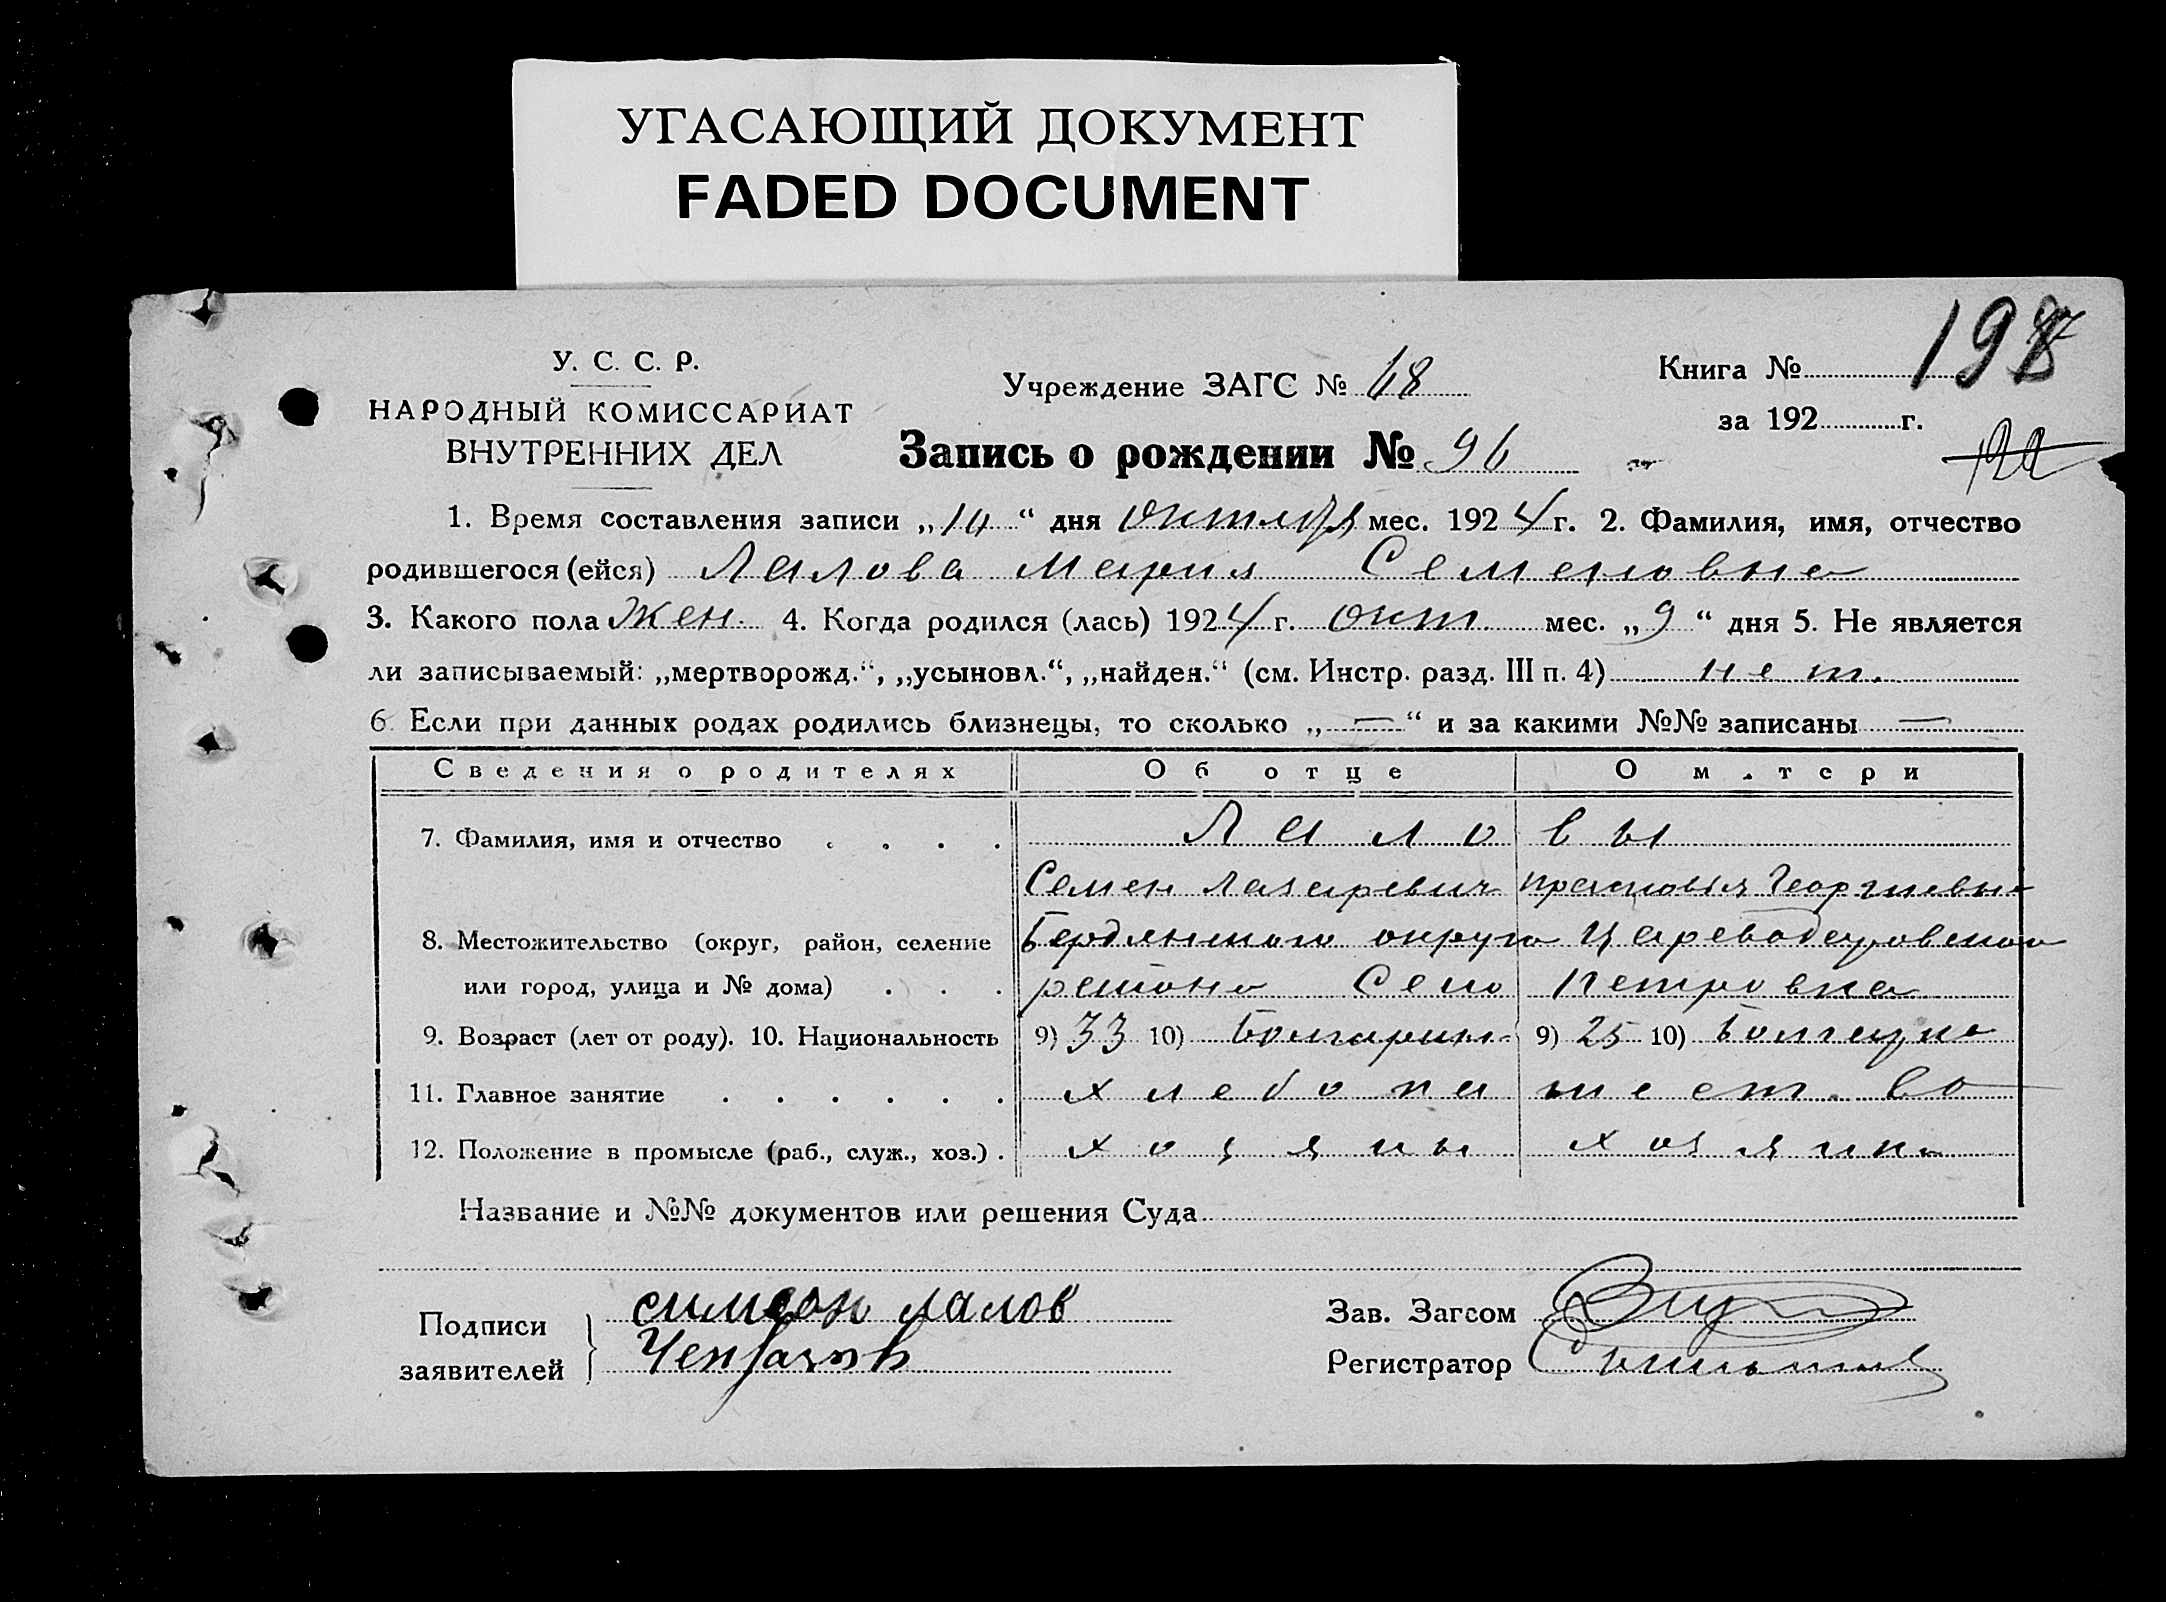 УГАСАЮЩИЙ ДОКУМЕНТ
FADED DOCUMENT
У. С. С. Р.
НАРОДНЫЙ КОМИССАРИАТ
ВНУТРЕННИХ ДЕЛ
Учреждение ЗАГС № 68
Книга №
за 192 г.
Запись о рождении № 96
1. Время составления записи „10“ дня октября мес. 1924 г. 2. Фамилия, имя, отчество
родившегося (ейся) Лалова Мария Семеновна
3. Какого пола Жен. 4. Когда родился (лась) 1924 г. окт. мес. „9“ дня 5. Не является
ли записываемый: „мертворожд.“, „усыновл.“, „найден.“ (см. Инстр. разд. III п. 4) нет.
6. Если при данных родах родились близнецы, то сколько „—“ и за какими №№ записаны —
Сведения о родителях Об отце О м.тери
7. Фамилия, имя и отчество . . . . Лаловы
Семен Лазаревич Прасковья Георгиевна
8. Местожительство (округ, район, селение Бердянского округа Цареводаровского
или город, улица и № дома) . . . района Село Петровка
9. Возраст (лет от роду). 10. Национальность 9) 33 10) Болгарин 9) 25 10) Болгарка
11. Главное занятие . . . . . . хлебопашест.во
12. Положение в промысле (раб., служ., хоз.) . хозяин хозяйка
Название и №№ документов или решения Суда
Подписи
заявителей
симеон лалов
Зав. Загсом
Регистратор